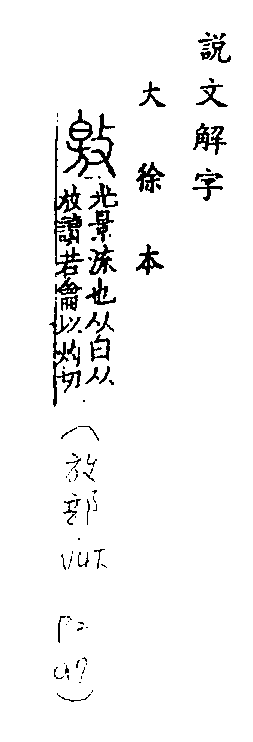 説文解字
大徐本
敫
光景流也从白从
放讀若龠以灼切
(放部